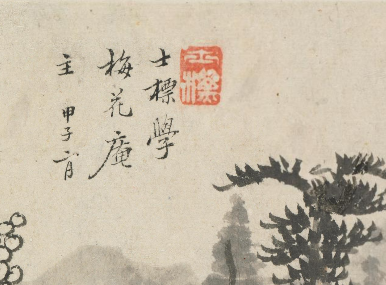 士標學
梅花庵
主 甲子六月
士標